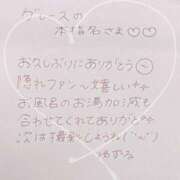 グレースの
本指名さま♡♡
お久しぶりにありがとう
隠れファン〜嬉しい
お風呂のお湯加減も
合わせてくれてありがと
次は撮影しようね
ゆずる